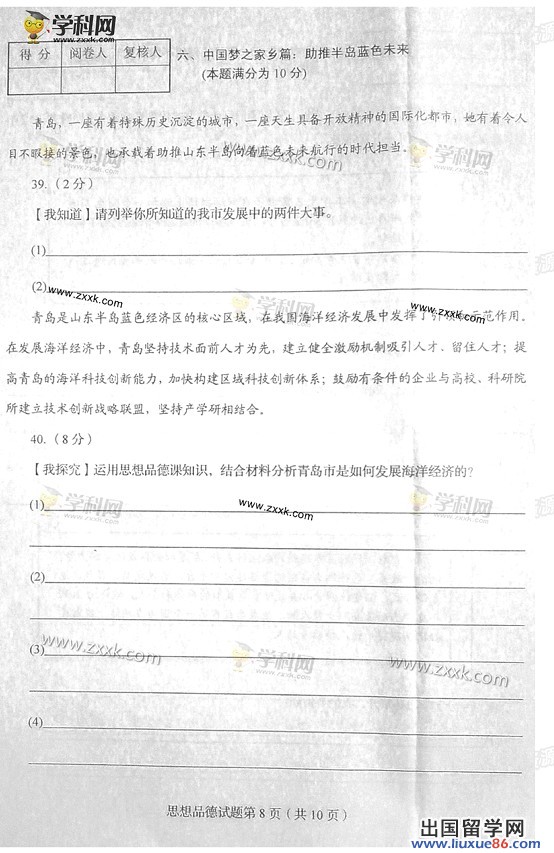 学科网
www.zxxk.com
得分 阅卷人 复核人
六、中国梦之家乡篇：助推半岛蓝色未来
(本题满分为 10 分)
青岛，一座有着特殊历史沉淀的城市，一座天生具备开放精神的国际化都市，她有着令人
目不暇接的景色，也承载着助推山东半岛向着蓝色未来航行的时代担当。
39.（2 分）
【我知道】请列举你所知道的我市发展中的两件大事。
(1)
(2)
www.zxxk.com
www.zxxk.com
青岛是山东半岛蓝色经济区的核心区域，在我国海洋经济发展中发挥了引领示范作用。
在发展海洋经济中，青岛坚持技术面前人才为先，建立健全激励机制吸引人才、留住人才；提
高青岛的海洋科技创新能力，加快构建区域科技创新体系；鼓励有条件的企业与高校、科研院
所建立技术创新战略联盟，坚持产学研相结合。
40.（8 分）
【我探究】运用思想品德课知识，结合材料分析青岛市是如何发展海洋经济的？
(1)
www.zxxk.com
(2)
www.zxxk.com
(3)
学科网
www.zxxk.com
(4)
思想品德试题第 8 页（共 10 页）
出国留学网
www.liuxue86.com